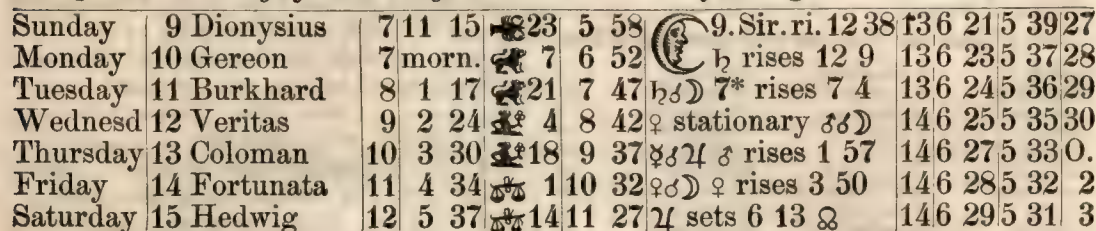 Sunday 9 Dionysius 7 11 15 23 5 58 ☾ 9. Sir. ri. 12 38 13 6 21 5 39 27
Monday 10 Gereon 7 morn. ♌ 7 6 52 ♄ rises 12 9 13 6 23 5 37 28
Tuesday 11 Burkhard 8 1 17 ♌ 21 7 47 ♄☌☽ 7* rises 7 4 13 6 24 5 36 29
Wednesd 12 Veritas 9 2 24 ♍ 4 8 42 ♀ stationary ♂☌☽ 14 6 25 5 35 30
Thursday 13 Coloman 10 3 30 ♍ 18 9 37 ☿☌♃ ♂ rises 1 57 14 6 27 5 33 O.
Friday 14 Fortunata 11 4 34 ♎ 1 10 32 ♀☌☽ ♀ rises 3 50 14 6 28 5 32 2
Saturday 15 Hedwig 12 5 37 ♎ 14 11 27 ♃ sets 6 13 ☊ 14 6 29 5 31 3